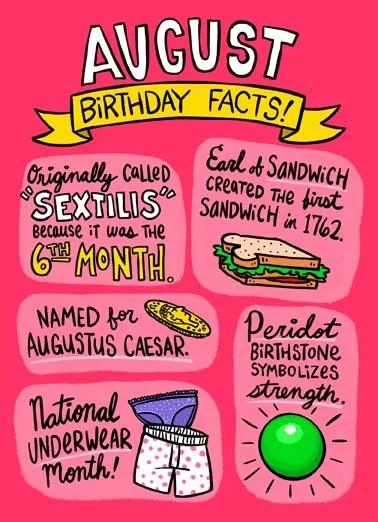 AUGUST
BIRTHDAY FACTS!
Originally CALLED
"SEXTILIS"
BECAUSE it was THE
6TH MONTH.
Earl of SANDWICH
CREATED THE first
SANDWICH in 1762.
NAMED for
AUGUSTUS CAESAR.
Peridot
BIRTHSTONE
SYMBOLIZES
strength.
National
UNDERWEAR
Month!